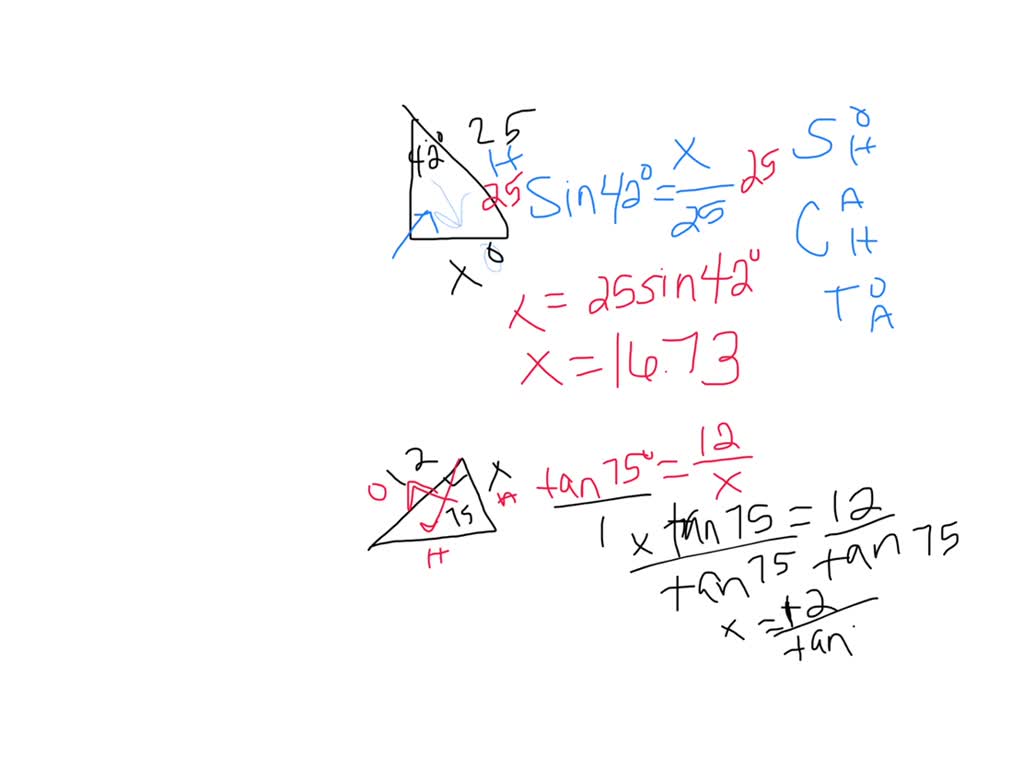 42°
25
H
25
x
O
Sin42° = x/25 25
S O/H
C A/H
T O/A
x = 25sin42°
x = 16.73
12
O
x
A
75
H
tan75°/1 = 12/x
x tan75/tan75 = 12/tan75
x = 12/tan